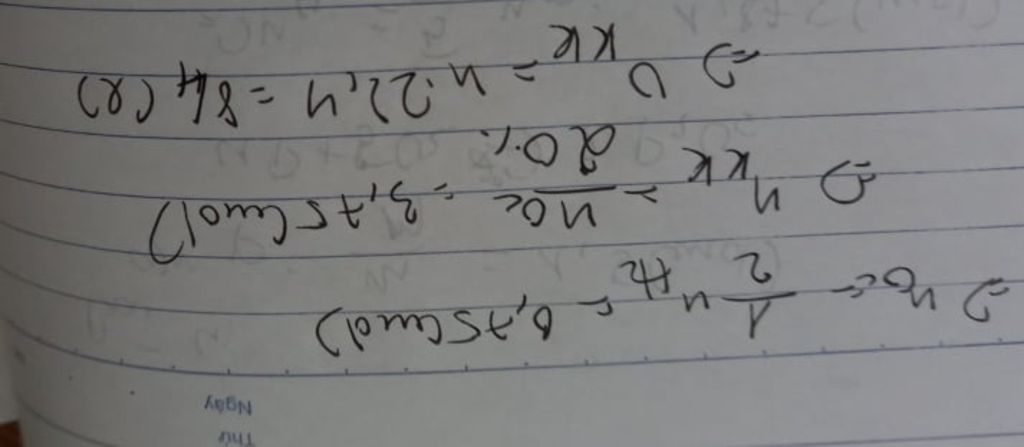 Thứ
Ngày
=> nO2 = 1/2 nH2 = 0,75 (mol)
=> nKK = nO2/20% = 3,75 (mol)
=> VKK = n.22,4 = 84 (l)